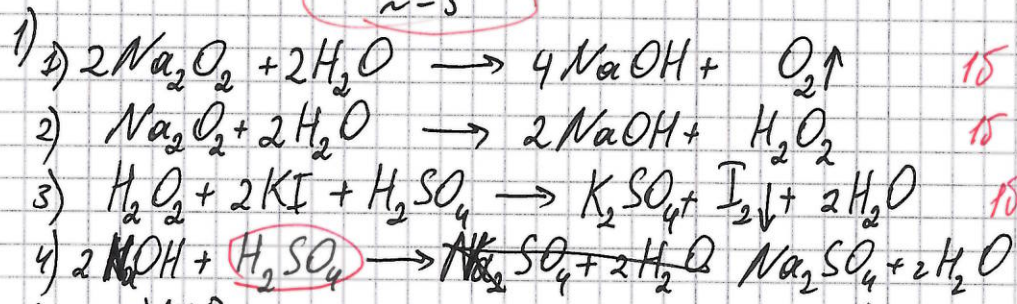 1) 1) 2Na₂O₂ + 2H₂O → 4NaOH + O₂↑ 1б
2) Na₂O₂ + 2H₂O → 2NaOH + H₂O₂ 1б
3) H₂O₂ + 2KI + H₂SO₄ → K₂SO₄ + I₂↓ + 2H₂O 1б
4) 2NaOH + H₂SO₄ → Na₂SO₄ + 2H₂O Na₂SO₄ + 2H₂O